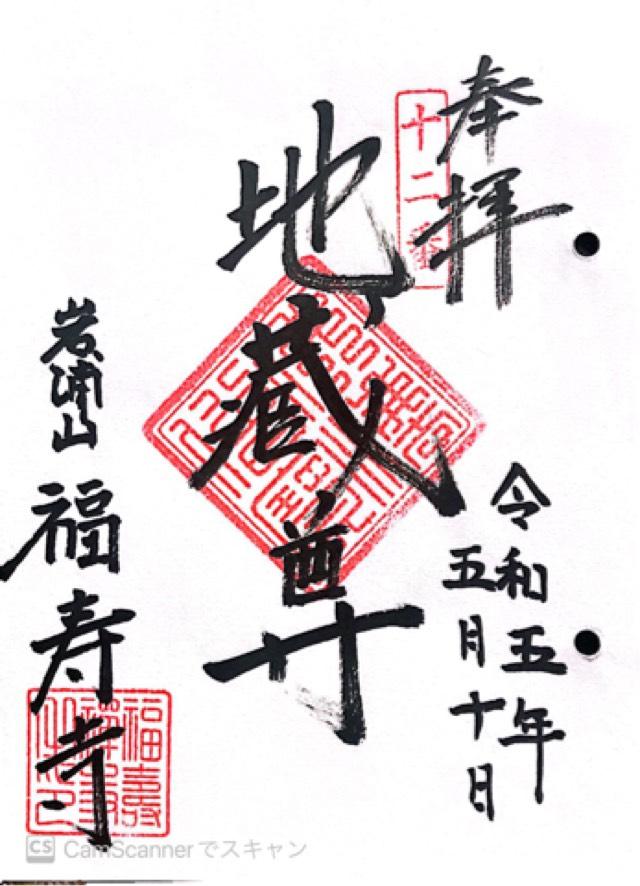 奉拝
十二番
地蔵尊
令和五年
五月十日
岩浦山
福寿寺
CS CamScannerでスキャン